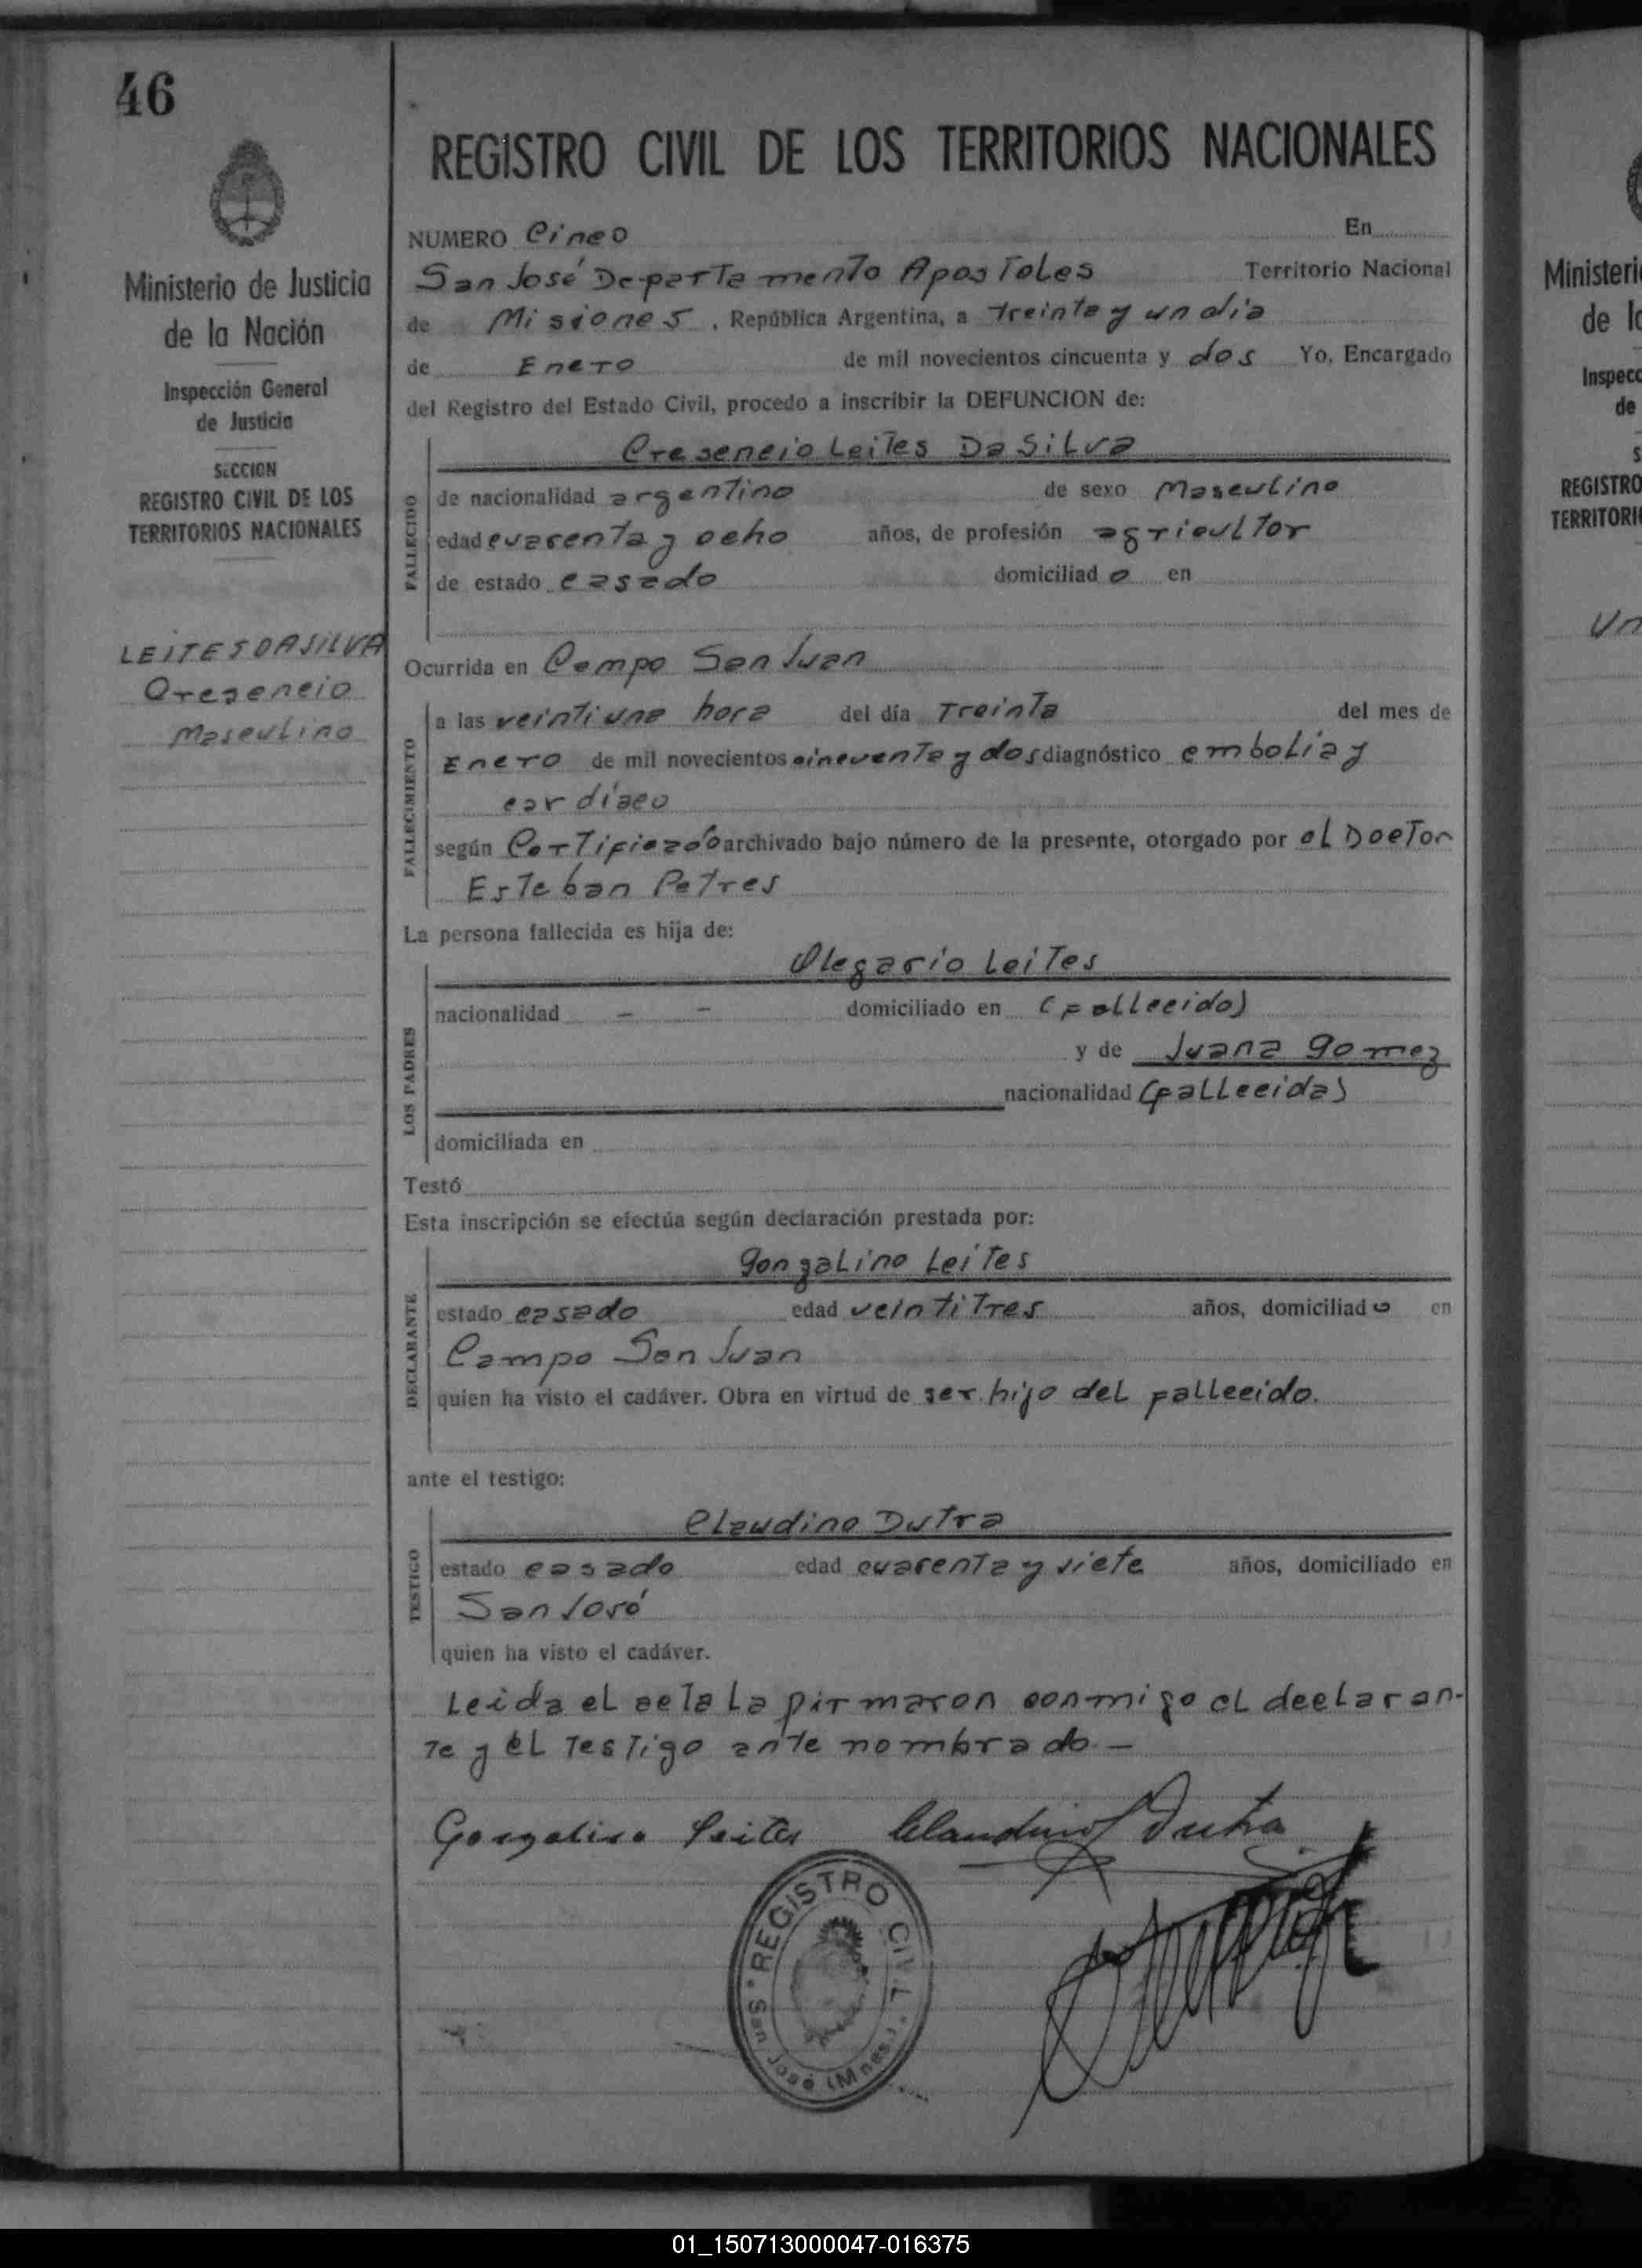 46
REGISTRO CIVIL DE LOS TERRITORIOS NACIONALES
Ministerio de Justicia
de la Nación
Inspección General
de Justicia
SECCION
REGISTRO CIVIL DE LOS
TERRITORIOS NACIONALES
LEITES DA SILVA
Cresencio
Masculino
NUMERO Cinco En
San José Departamento Apostoles Territorio Nacional
de Misiones, República Argentina, a treinta y un dia
de Enero de mil novecientos cincuenta y dos Yo, Encargado
del Registro del Estado Civil, procedo a inscribir la DEFUNCION de:
FALLECIDO
Cresencio Leites Da Silva
de nacionalidad argentino de sexo Masculino
edad cuarenta y ocho años, de profesión agricultor
de estado casado domiciliado en
Ocurrida en Campo San Juan
FALLECIMIENTO
a las veintiuna hora del día Treinta del mes de
Enero de mil novecientos cincuenta y dos diagnóstico embolia y
cardiaco
según Certificado archivado bajo número de la presente, otorgado por el Doctor
Esteban Petres
La persona fallecida es hija de:
LOS PADRES
Olegario Leites
nacionalidad - - domiciliado en (fallecido)
y de Juana Gomez
nacionalidad (fallecida)
domiciliada en
Testó
Esta inscripción se efectúa según declaración prestada por:
DECLARANTE
Gonzalino Leites
estado casado edad veintitres años, domiciliado en
Campo San Juan
quien ha visto el cadáver. Obra en virtud de ser hijo del fallecido.
ante el testigo:
TESTIGO
Claudino Dutra
estado casado edad cuarenta y siete años, domiciliado en
San José
quien ha visto el cadáver.
Leida el acta la firmaron conmigo el declaran-
te y el testigo ante nombrado.—
Gonzalino Leites Claudino Dutra
REGISTRO CIVIL
San José (Mnes.)
Ministeri
de l
Inspecc
de
S
REGISTRO
TERRITORI
01_150713000047-016375